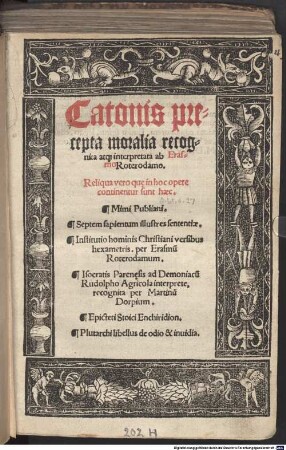 Catonis pre-
cepta moralia recog-
nita atq; interpretata ab Eras-
mo Roterodamo.
Reliqua vero que in hoc opere
continentur sunt hæc.
¶ Mimi Publiani.
¶ Septem sapientum illustres sententiæ.
¶ Institutio hominis Christiani versibus
hexametris. per Erasmũ
Roterodamum.
¶ Isocratis Parenesis ad Demonicũ
Rudolpho Agricola interprete,
recognita per Martinũ
Dorpium.
¶ Epicteti Stoici Enchiridion.
¶ Plutarchi libellus de odio & inuidia.
202 H